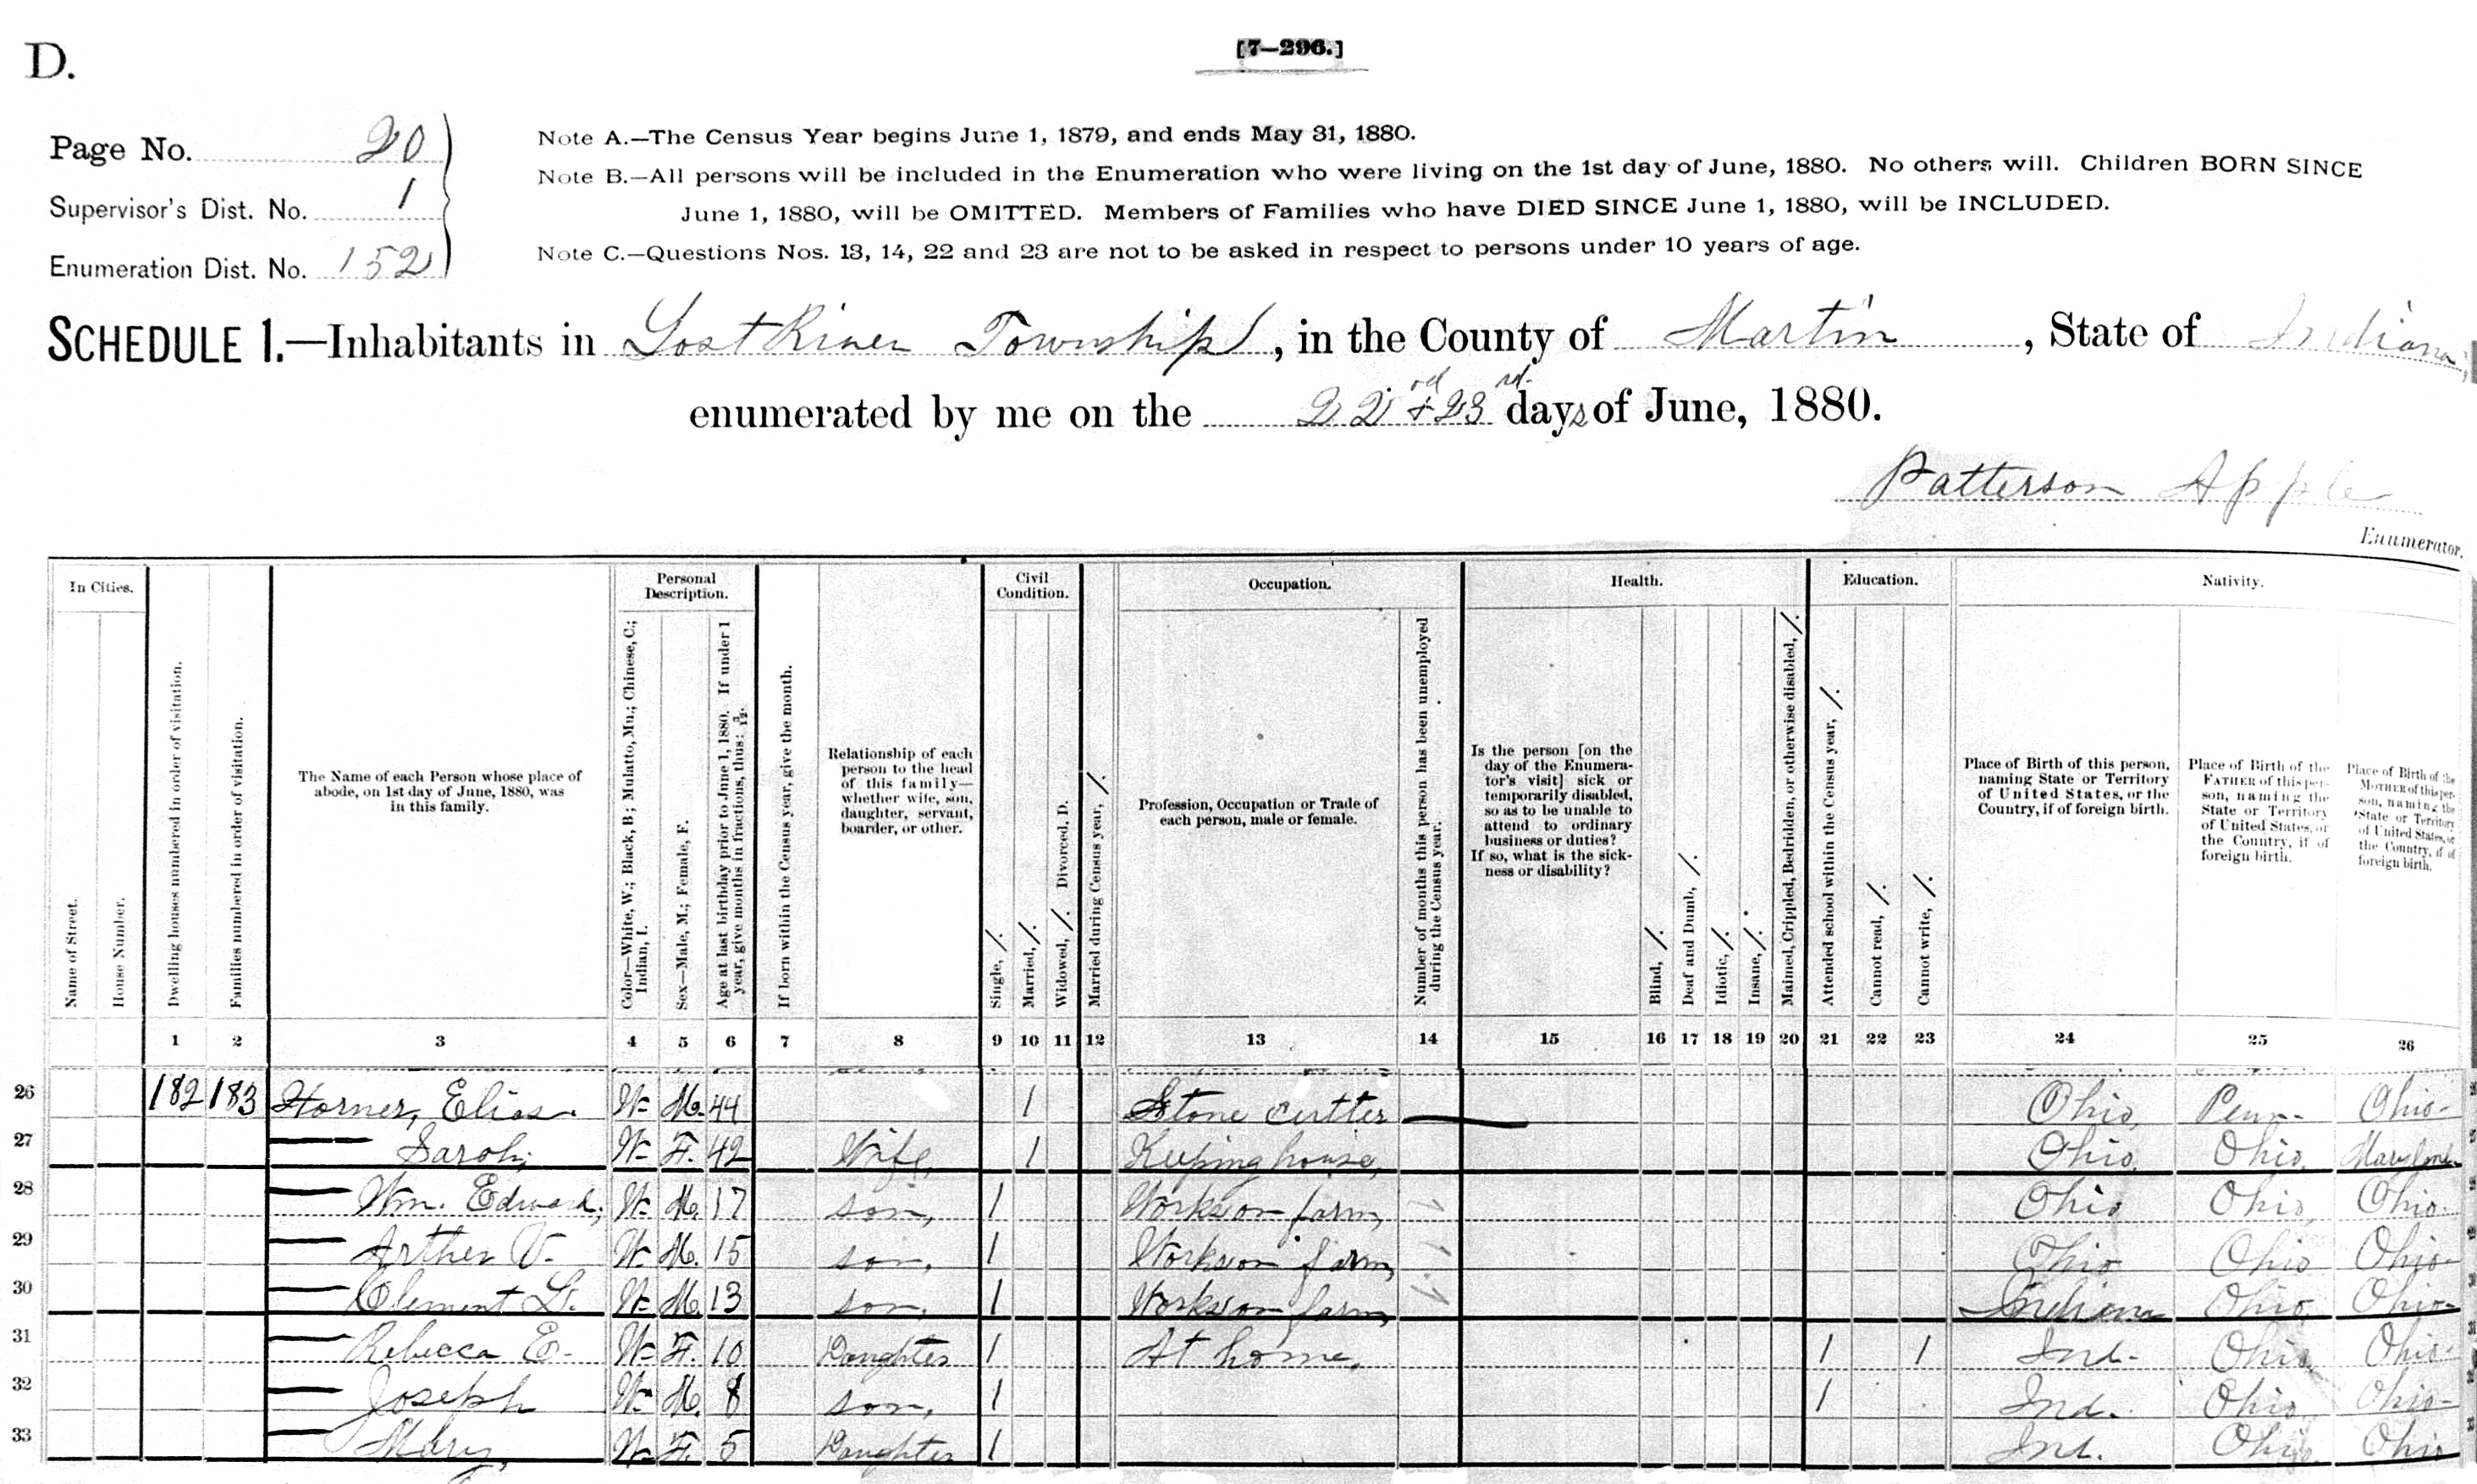 [7—296.]
D.
Page No. 20
Supervisor's Dist. No. 1
Enumeration Dist. No. 152
Note A.—The Census Year begins June 1, 1879, and ends May 31, 1880.
Note B.—All persons will be included in the Enumeration who were living on the 1st day of June, 1880. No others will. Children BORN SINCE
June 1, 1880, will be OMITTED. Members of Families who have DIED SINCE June 1, 1880, will be INCLUDED.
Note C.—Questions Nos. 13, 14, 22 and 23 are not to be asked in respect to persons under 10 years of age.
SCHEDULE 1.—Inhabitants in Lost River Township, in the County of Martin, State of Indiana,
enumerated by me on the 22nd + 23rd days of June, 1880.
Patterson Apple
Enumerator.
In Cities.
Personal Description.
Civil Condition.
Occupation.
Health.
Education.
Nativity.
Name of Street.
House Number.
Dwelling houses numbered in order of visitation.
Families numbered in order of visitation.
The Name of each Person whose place of
abode, on 1st day of June, 1880, was
in this family.
Color—White, W.; Black, B; Mulatto, Mu.; Chinese, C.;
Indian, I.
Sex—Male, M.; Female, F.
Age at last birthday prior to June 1, 1880. If under 1
year, give months in fractions, thus: 3/12.
If born within the Census year, give the month.
Relationship of each
person to the head
of this family—
whether wife, son,
daughter, servant,
boarder, or other.
Single, /.
Married, /.
Widowed, /. Divorced, D.
Married during Census year, /.
Profession, Occupation or Trade of
each person, male or female.
Number of months this person has been unemployed
during the Census year.
Is the person [on the
day of the Enumera-
tor's visit] sick or
temporarily disabled,
so as to be unable to
attend to ordinary
business or duties?
If so, what is the sick-
ness or disability?
Blind, /.
Deaf and Dumb, /.
Idiotic, /.
Insane, /.
Maimed, Crippled, Bedridden, or otherwise disabled, /.
Attended school within the Census year, /.
Cannot read, /.
Cannot write, /.
Place of Birth of this person,
naming State or Territory
of United States, or the
Country, if of foreign birth.
Place of Birth of the
FATHER of this per-
son, naming the
State or Territory
of United States, or
the Country, if of
foreign birth.
Place of Birth of the
MOTHER of this per-
son, naming the
State or Territory
of United States, or
the Country, if of
foreign birth.
1 2 3 4 5 6 7 8 9 10 11 12 13 14 15 16 17 18 19 20 21 22 23 24 25 26
26 182 183 Horner, Elias. W. M. 44 1 Stone cutter Ohio, Penn- Ohio-
27 — Sarah, W. F. 42 Wife, 1 Keeping house, Ohio. Ohio.
28 — Wm. Edward, W. M. 17 son, 1 Works on farm, Ohio Ohio, Ohio.
29 — Arther V. W. M. 15 son, 1 Works on farm, Ohio Ohio Ohio-
30 — Clement L. W. M. 13 son, 1 Works on farm, Indiana Ohio, Ohio-
31 — Rebecca E. W. F. 10 Daughter 1 At home, 1 1 Ind. Ohio Ohio-
32 — Joseph W. M. 8 son, 1 1 Ind. Ohio Ohio-
33 — Mary, W. F. 5 Daughter 1 Ind. Ohio. Ohio